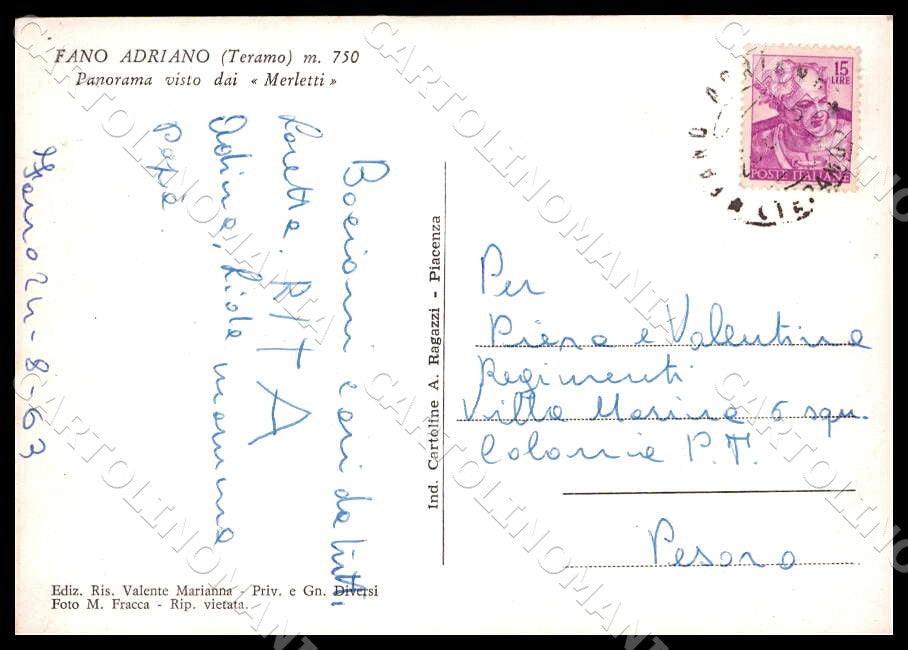 FANO ADRIANO (Teramo) m. 750
Panorama visto dai « Merletti »
15
LIRE
POSTE ITALIANE
FANO ADRIANO
★ (TERAMO) ★
Bacioni cari da tutti
Loretta. RITA
Adina, Lida mamma
Papà
Fano 24-8-63
Ind. Cartoline A. Ragazzi - Piacenza
Per
Piera e Valentina
Regimenti
Villa Marina 6 squ.
Colonia P.T.
Pesaro
Ediz. Ris. Valente Marianna - Priv. e Gn. Diversi
Foto M. Fracca - Rip. vietata.
CARTOLINOMANIA